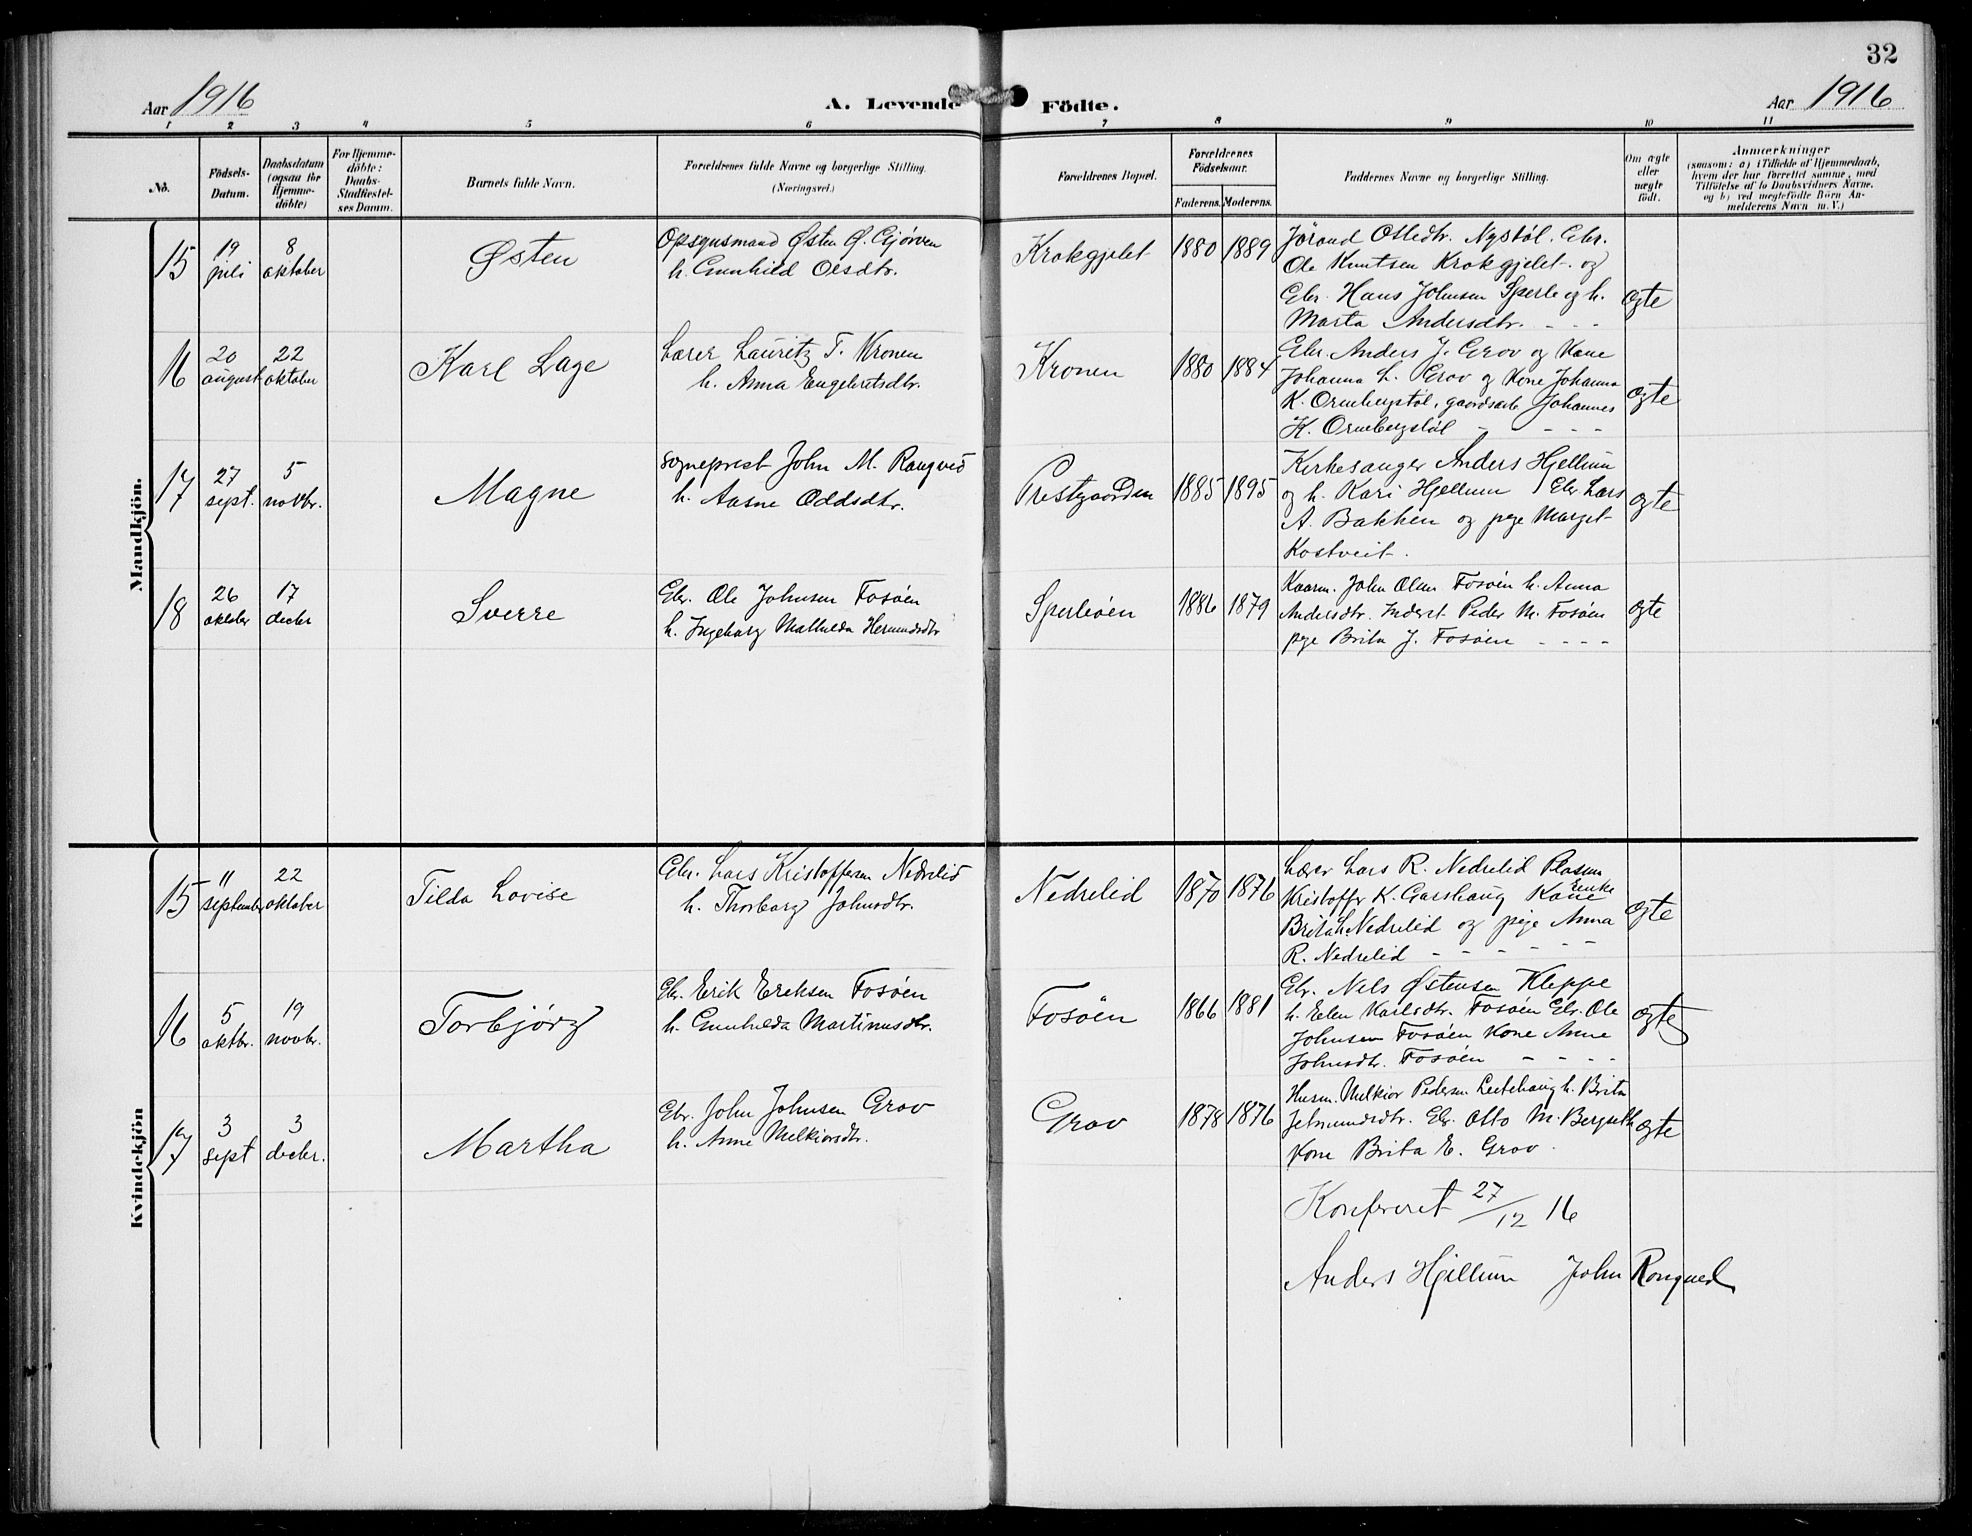 32
Aar 1916
A. Levende Födte.
Aar 1916
1 2 3 4 5 6 7 8 9 10 11
No.
Födsels-
Datum.
Daabsdatum
(ogsaa for
Hjemme-
döbte)
For Hjemme-
döbte:
Daabs-
Stadfæstel-
ses Datum.
Barnets fulde Navn.
Forældrenes fulde Navne og borgerlige Stilling.
(Næringsvei.)
Forældrenes Bopæl.
Forældrenes
Födselsaar.
Faderens. Moderens.
Faddernes Navne og borgerlige Stilling.
Om ægte
eller
uægte
födt.
Anmærkninger
(saasom: a) i Tilfælde af Hjemmedaab,
hvem der har forrettet samme, med
Tilföielse af to Daabsvidners Navne,
og b) ved uægtefödte Börn An-
melderens Navn m. V.)
Mandkjön.
15
19
juli
8
oktober
Østen
Opsynsmand Østen Ø. Gjørven
h. Gunhild Olsdtr.
Krokgjelet
1880 1889
Jörand Ottedtr. Nystöl. Gbr.
Ole Knutsen Krokgjelet og
Gbr. Hans Johnsen Sperle og h.
Marta Andersdtr. - - -
ægte
16
20
august
22
oktober
Karl Lage
Lærer Lauritz T. Kronen
h. Anna Engebretsdtr.
Kronen
1880 1884
Gbr. Anders J. Grov og Kone
Johanna L. Grov og Kone Johanna
K. Ormbergstøl, gaardsarb. Johannes
K. Ormbergstøl - - - -
ægte
17
27
sept.
5
novbr.
Magne
sogneprest John M. Rongved
h. Aasne Oddsdtr.
Prestgaarden
1885 1895
Kirkesanger Anders Hjellum
og h. Kari Hjellum Gbr. Lars
A. Bakken og pige Marget
Kostveit.
ægte
18
26
oktober
17
decbr
Sverre
Gbr. Ole Johnsen Fosøen
h. Ingeborg Mathilda Hermundsdtr
Sperleøen
1886 1879
Kaarm. John Olsen Fosøen h. Anna
Andersdtr. Inderst Peder M. Fosøen
pige Brita J. Fosøen - - - -
ægte
Kvindekjön
15
11
september
22
oktober
Tilda Lovise
Gbr. Lars Kristoffersen Nedrelid
h. Thorborg Johnsdtr.
Nedrelid
1870 1876
Lærer Lars R. Nedrelid Plasm
Kristoffer K. Garshaug Kone Enke
Brita L. Nedrelid og pige Anna
R. Nedrelid - - - - -
ægte
16
5
oktbr.
19
novbr.
Torbjørg
Gbr. Erik Eriksen Fosøen
h. Gunhilda Martinusdtr.
Fosøen
1866 1881
Gbr. Nils Østensen Kleppe
h. Elen Karlsdtr. Fosøen Gbr. Ole
Johnsen Fosøen Kone Anne
Johnsdtr. Fosøen - - - -
ægte
17
3
sept
3
decbr.
Martha
Gbr. John Johnsen Grov
h. Anne Melkiorsdtr.
Grov
1878 1876
Husm. Melkior Pedersen Leitehaug h. Brita
Jetmundsdtr. Gbr. Otto M. Bergseth
Kone Brita E. Grov.
ægte
Konfereret 27/12 16
Anders Hjellum John Rongved